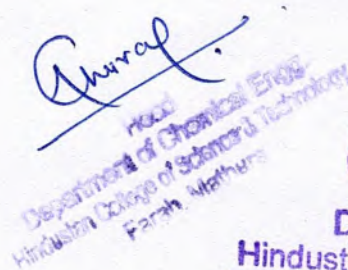 Head
Department of Chemical Engg.
Hindustan College of Science & Technology
Farah, Mathura
D
Hindust